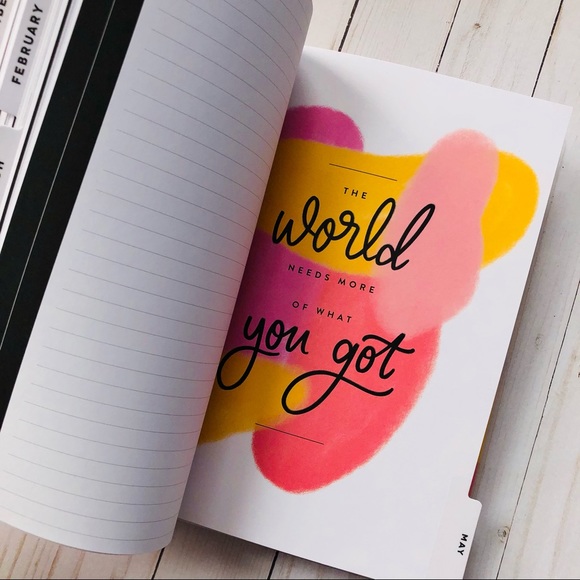 FEBRUARY
THE
world
NEEDS MORE
OF WHAT
you got
MAY